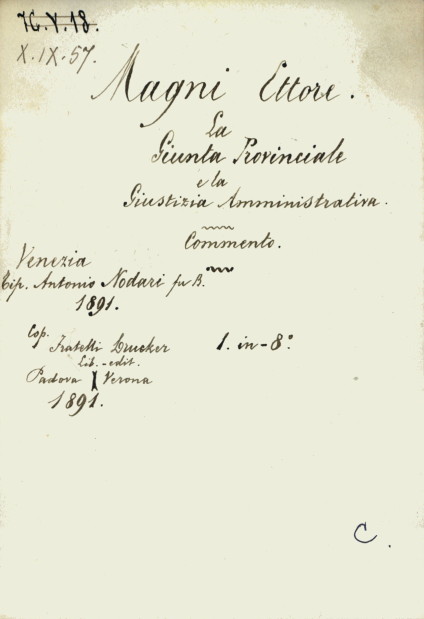 X.Y.18.
X.IX.57.
Magni Ettore.
La
Giunta Provinciale
e la
Giustizia Amministrativa.
Commento.
Venezia
Tip. Antonio Nodari fu B.
1891.
Cop.
Fratelli Drucker 1. in-8°
Lib.-edit.
Padova Verona
1891.
C.